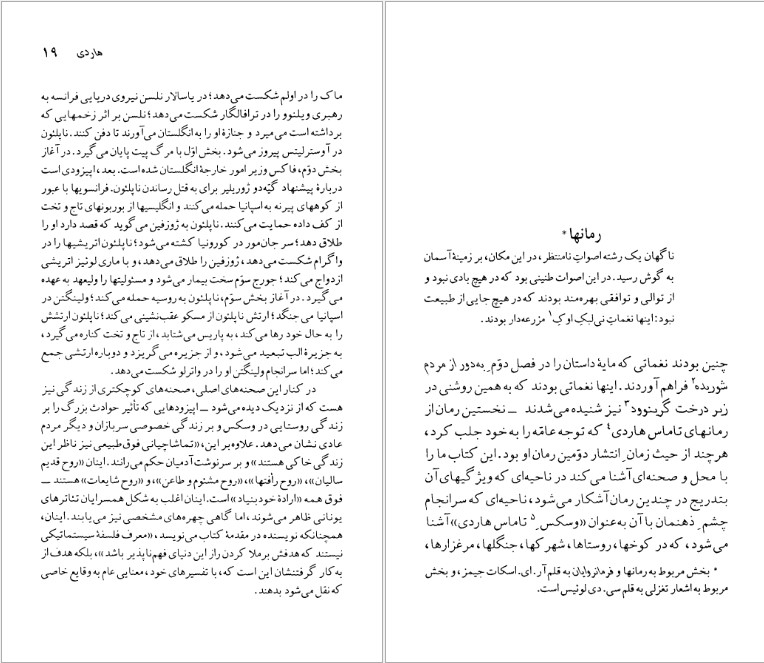 هاردی ۱۹
ماک را در اولم شکست می‌دهد؛ دریاسالار نلسن نیروی دریایی فرانسه به
رهبری ویلنوو را در ترافالگار شکست می‌دهد؛ نلسن بر اثر زخمهایی که
برداشته است می‌میرد و جنازهٔ او را به انگلستان می‌آورند تا دفن کنند. ناپلئون
در آوسترلیتس پیروز می‌شود. بخش اوّل با مرگ پیت پایان می‌گیرد. در آغاز
بخش دوّم، فاکس وزیر امور خارجهٔ انگلستان شده است. بعد، اپیزودی است
دربارهٔ پیشنهاد گیّه‌دو ژورِیلیر برای به قتل رساندن ناپلئون. فرانسویها با عبور
از کوههای پیرنه به اسپانیا حمله می‌کنند و انگلیسیها از بوربونهای تاج و تخت
از کف داده حمایت می‌کنند. ناپلئون به ژوزفین می‌گوید که قصد دارد او را
طلاق دهد؛ سر جان‌مور در کورونیا کشته می‌شود؛ ناپلئون اتریشیها را در
واگرام شکست می‌دهد، ژوزفین را طلاق می‌دهد، و با ماری لوئیز اتریشی
ازدواج می‌کند؛ جورج سوّم سخت بیمار می‌شود و مسئولیتها را ولیعهد به عهده
می‌گیرد. در آغاز بخش سوّم، ناپلئون به روسیه حمله می‌کند؛ ولینگتن در
اسپانیا می‌جنگد؛ ارتش ناپلئون از مسکو عقب‌نشینی می‌کند؛ ناپلئون ارتشش
را به حال خود رها می‌کند، به پاریس می‌شتابد، از تاج و تخت کناره می‌گیرد،
به جزیرهٔ الب تبعید می‌شود، و از جزیره می‌گریزد و دوباره ارتشی جمع
می‌کند؛ اما سرانجام ولینگتن او را در واترلو شکست می‌دهد.
در کنار این صحنه‌های اصلی، صحنه‌های کوچکتری از زندگی نیز
هست که از نزدیک دیده می‌شود ــ اپیزودهایی که تأثیر حوادث بزرگ را بر
زندگی روستایی در وسکس و بر زندگی خصوصی سربازان و دیگر مردم
عادی نشان می‌دهد. علاوه بر این، «تماشاچیانی فوق‌طبیعی نیز ناظر این
زندگی خاکی هستند» و بر سرنوشت آدمیان حکم می‌رانند. اینان «روح قدیم
سالیان»، «روح رأفتها»، «روح مشئوم و طاعن» و «روح شایعات» هستند ــ
فوق همه «ارادهٔ خودبنیاد» است. اینان اغلب به شکل همسرایان تئاترهای
یونانی ظاهر می‌شوند، اما گاهی چهره‌های مشخصی نیز می‌یابند. اینان،
همچنانکه نویسنده در مقدمهٔ کتاب می‌نویسد، «معرف فلسفهٔ سیستماتیکی
نیستند که هدفش برملا کردن راز این دنیای فهم‌ناپذیر باشد»، بلکه هدف از
به کار گرفتنشان این است که، با تفسیرهای خود، معنایی عام به وقایع خاصی
که نقل می‌شود بدهند.
رمانها*
ناگهان یک رشته اصواتِ نامنتظر، در این مکان، بر زمینهٔ آسمان
به گوش رسید. در این اصوات طنینی بود که در هیچ بادی نبود و
از توالی و توافقی بهره‌مند بودند که در هیچ جایی از طبیعت
نبود: اینها نغماتِ نی‌لبکِ اوکِ۱ مزرعه‌دار بودند.
چنین بودند نغماتی که مایهٔ داستان را در فصل دوّم ِ به‌دور از مردم
شوریده۲ فراهم آوردند. اینها نغماتی بودند که به همین روشنی در
زیر درخت گرینوود۳ نیز شنیده می‌شدند ــ نخستین رمان از
رمانهای تاماس هاردی۴ که توجه عامّه را به خود جلب کرد،
هرچند از حیث زمان ِ انتشار دوّمین رمان او بود. این کتاب ما را
با محل و صحنه‌ای آشنا می‌کند در ناحیه‌ای که ویژگیهای آن
بتدریج در چندین رمان آشکار می‌شود، ناحیه‌ای که سرانجام
چشم ِ ذهنمان با آن به‌عنوان «وسکس ِ۵ تاماس هاردی» آشنا
می‌شود، که در کوخها، روستاها، شهرکها، جنگلها، مرغزارها،
* بخش مربوط به رمانها و فرمانروایان به قلم آر. ای. اسکات جیمز، و بخش
مربوط به اشعار تغزلی به قلم سی. دی لوئیس است.